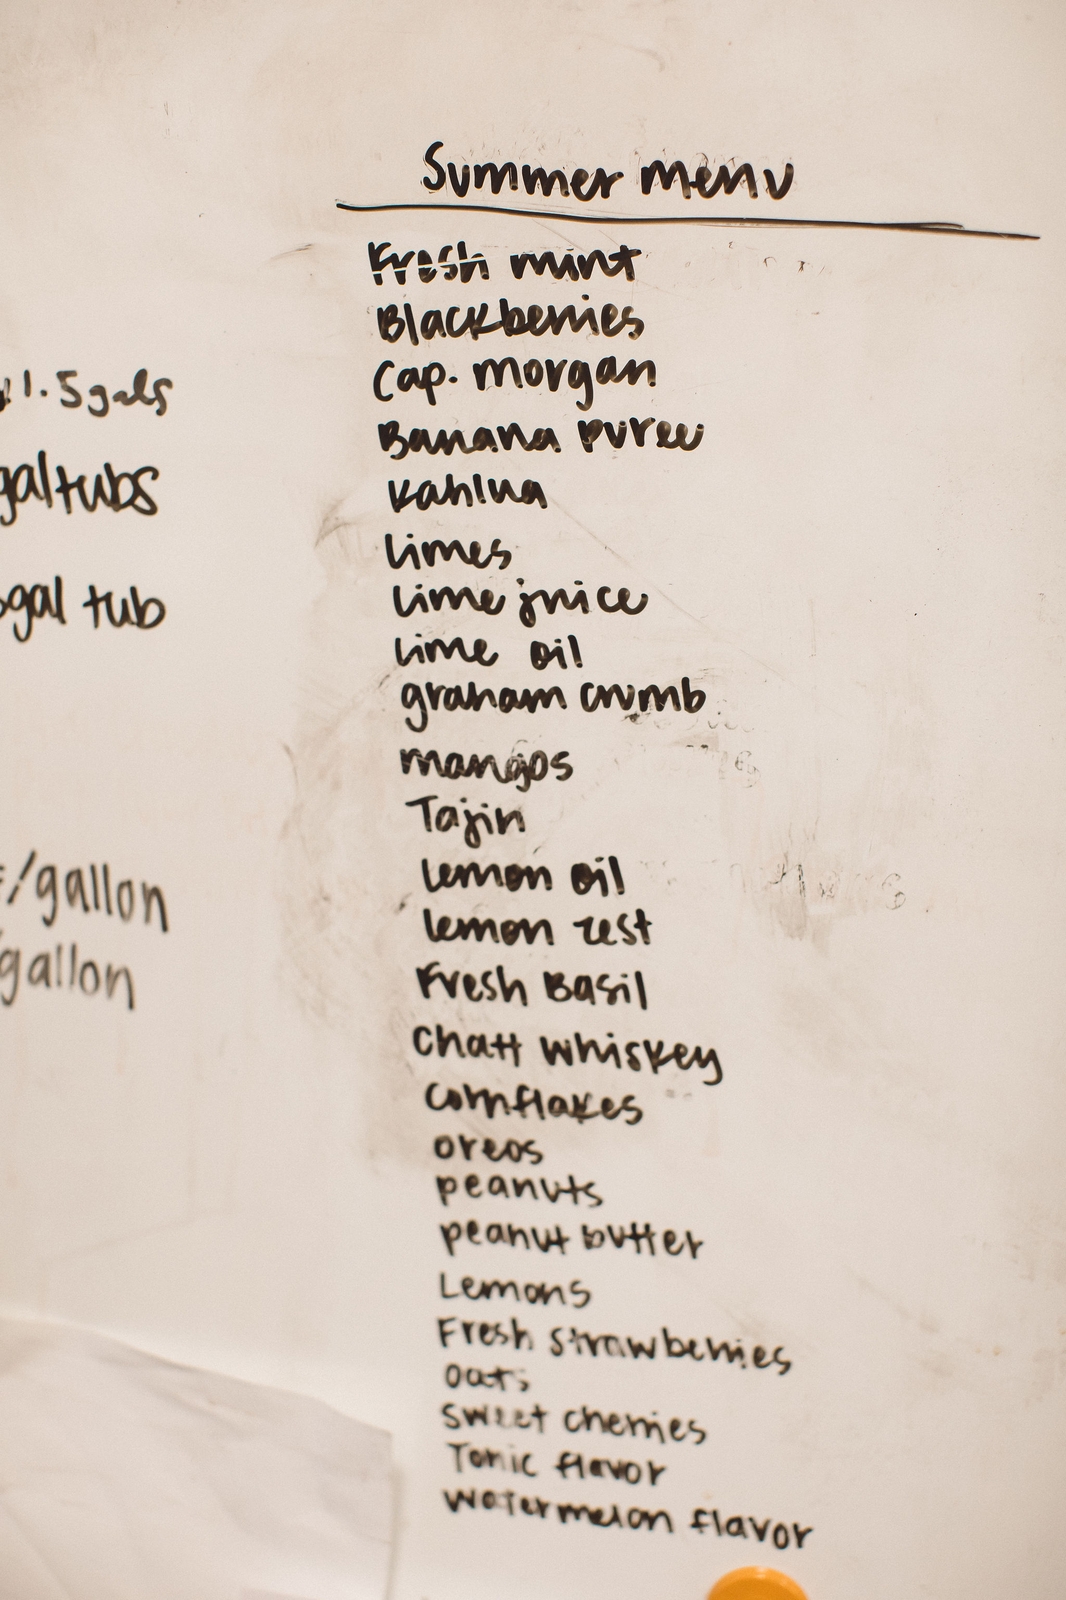 Summer menu
Fresh mint
Blackberries
Cap. Morgan
Banana puree
Kahlua
Limes
Lime juice
Lime oil
graham crumb
mangos
Tajin
Lemon oil
lemon zest
Fresh Basil
Chatt whiskey
Cornflakes
oreos
peanuts
peanut butter
Lemons
Fresh strawberries
oats
sweet cherries
Tonic flavor
watermelon flavor
1.5 gals
gal tubs
gal tub
/gallon
/gallon